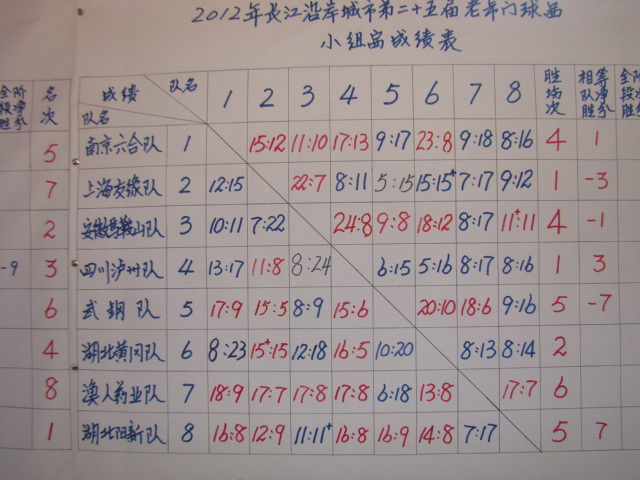 2012年长江沿岸城市第二十五届老年门球赛
小组赛成绩表
全阶段净胜分 名次 成绩 队名 队名 1 2 3 4 5 6 7 8 胜场次 相等队净胜分 全阶段净胜分
5 南京六合队 1 15:12 11:10 17:13 9:17 23:8 9:18 8:16 4 1
7 上海友缘队 2 12:15 22:7 8:11 5:15 15:15+ 7:17 9:12 1 -3
2 安徽马鞍山队 3 10:11 7:22 24:8 9:8 18:12 8:17 11+:11 4 -1
-9 3 四川泸州队 4 13:17 11:8 8:24 6:15 5:16 8:17 8:16 1 3
6 武钢队 5 17:9 15:5 8:9 15:6 20:10 18:6 9:16 5 -7
4 湖北黄冈队 6 8:23 15+:15 12:18 16:5 10:20 8:13 8:14 2
8 澳人药业队 7 18:9 17:7 17:8 17:8 6:18 13:8 17:7 6
1 湖北阳新队 8 16:8 12:9 11:11+ 16:8 16:9 14:8 7:17 5 7